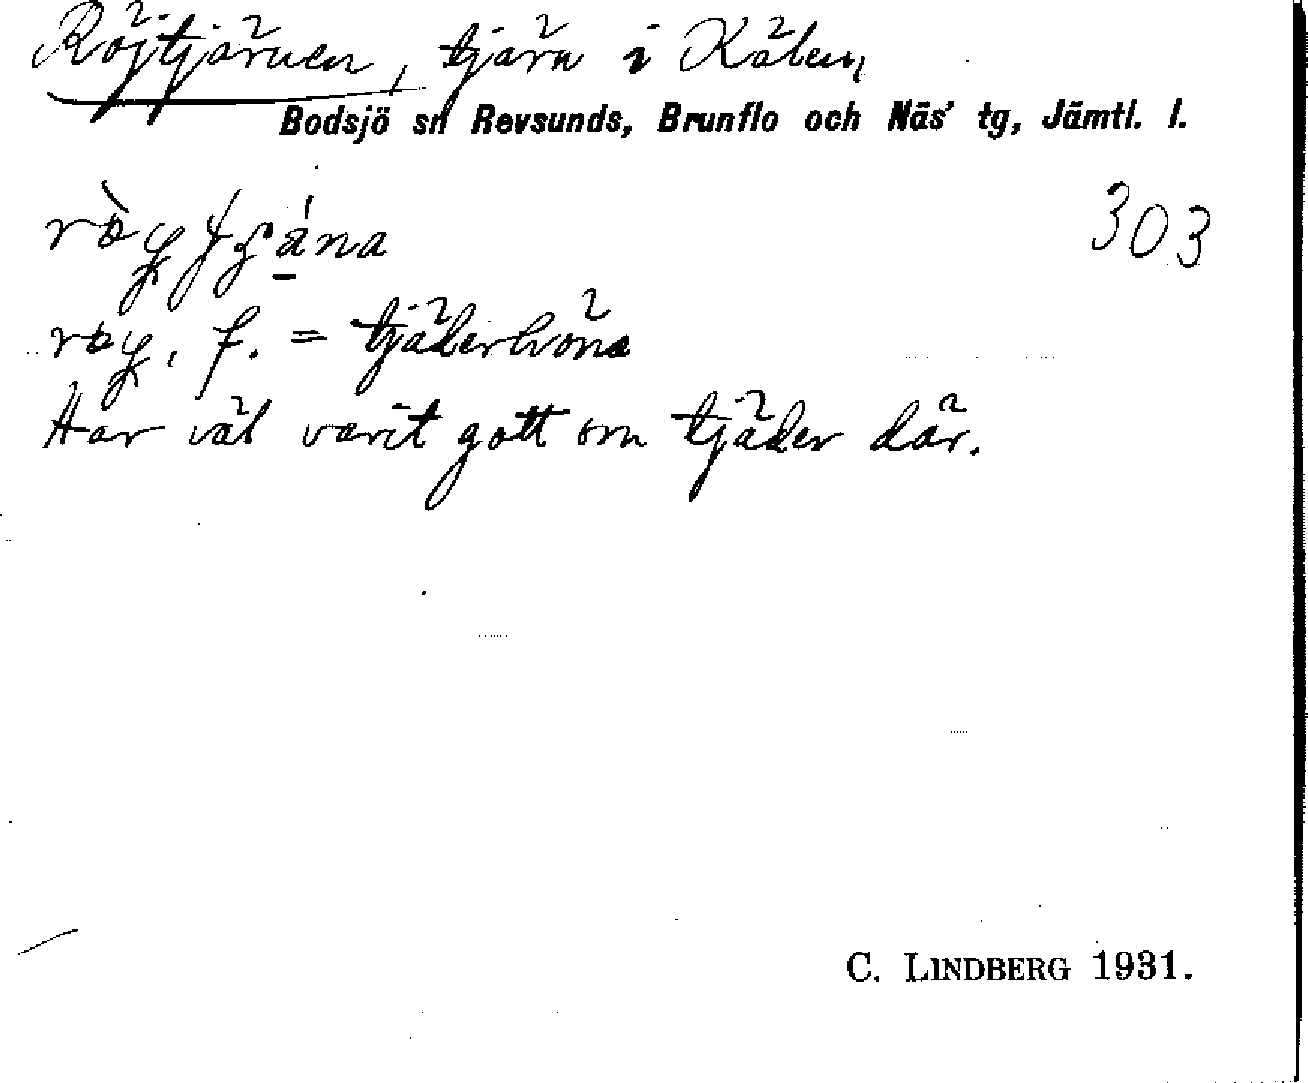 Röjtjärnen, tjärn i Kälen,
Bodsjö sn Revsunds, Brunflo och Näs' tg, Jämtl. l.
303
f. = tjäderhöna
Har väl varit gott om tjäder där.
C. LINDBERG 1931.